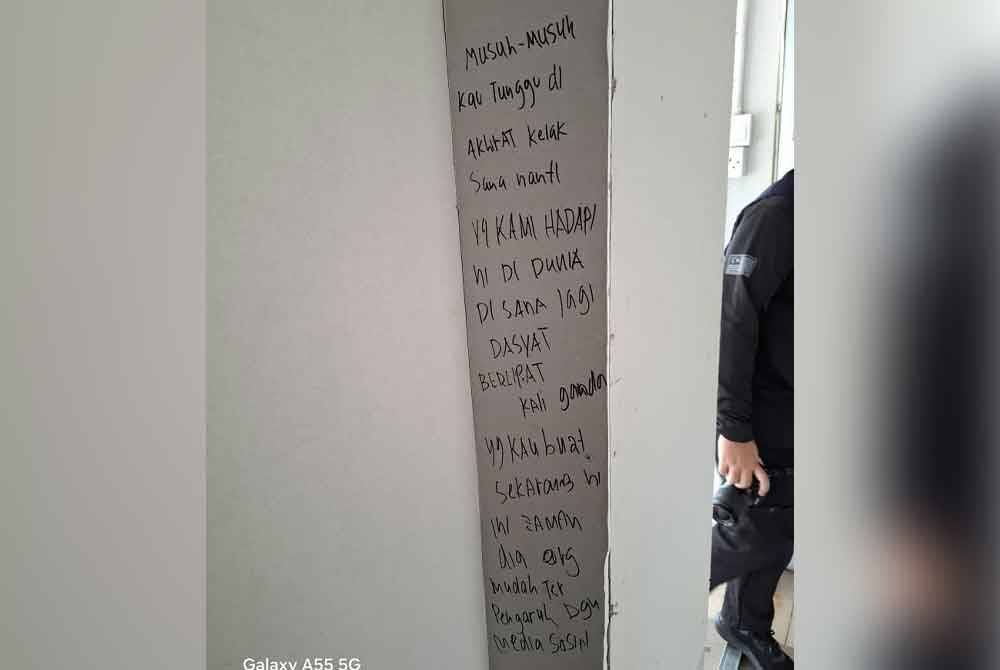 MUSUH-MUSUH
KAU TUNGGU DI
AKHRAT KELAK
Sana nanti
YG KAMI HADAPI
NI DI DUNIA
DI SANA lAgI
DASYAT
BERLIPAT
KALI ganda
yg KAU buat
SEKARANG NI
INI ZAMAN
dia org
Mudah Ter
Pengaruh Dgn
Media SoSIAl
Galaxy A55 5G